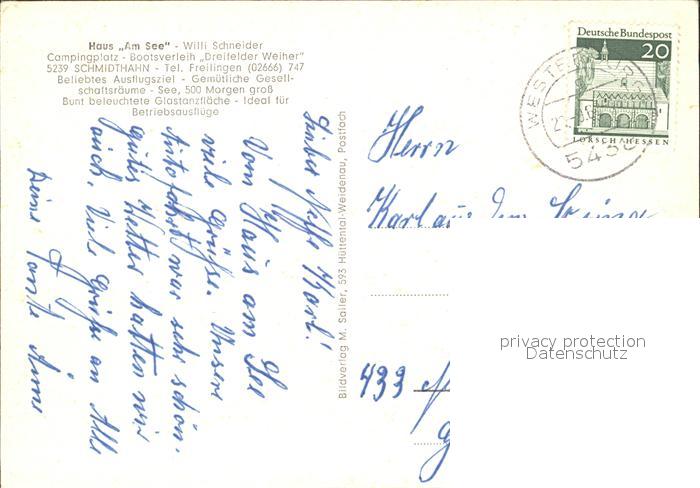 Haus „Am See" - Willi Schneider
Campingplatz - Bootsverleih „Dreifelder Weiher"
5239 SCHMIDTHAHN - Tel. Freilingen (02666) 747
Beliebtes Ausflugsziel - Gemütliche Gesell-
schaftsräume - See, 500 Morgen groß
Bunt beleuchtete Glastanzfläche - Ideal für
Betriebsausflüge
Lieber Neffe Karl!
Vom Haus am See
viele Grüße. Unsere
Autofahrt war sehr schön.
gutes Wetter hatten wir
auch. Viele Grüße an Alle
Deine Tante Änne
Bildverlag M. Saller, 593 Hüttental-Weidenau, Postfach
Deutsche Bundespost
20
LORSCH/HESSEN
WESTERBURG
543
Herrn
Karl aus dem
433
privacy protection
Datenschutz